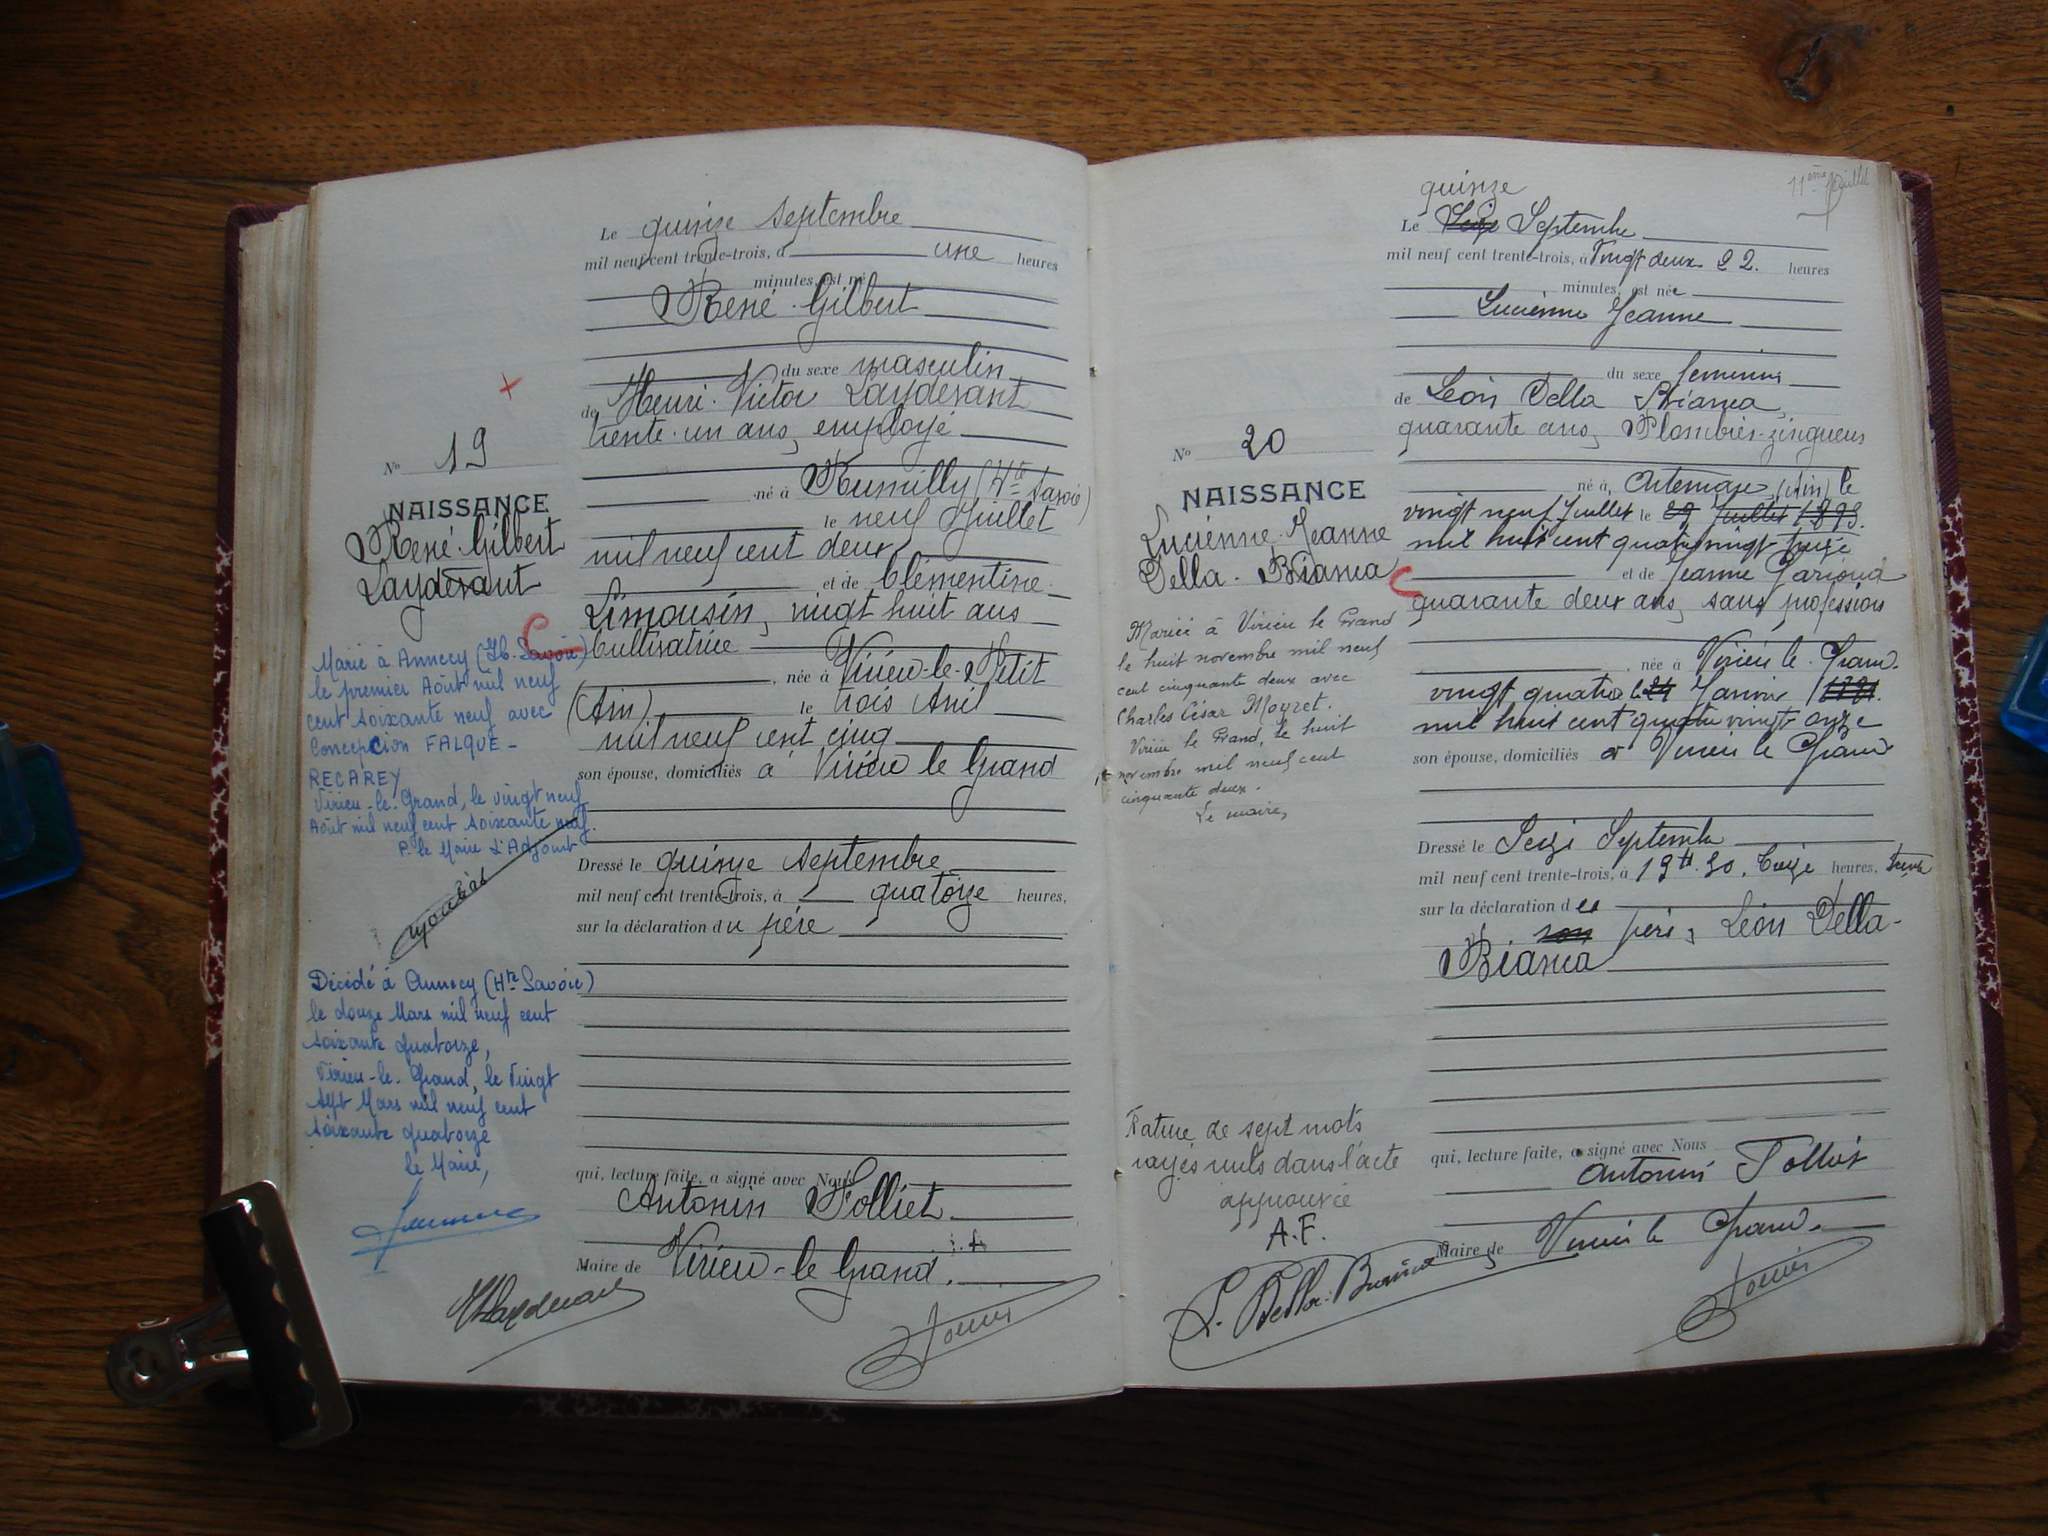 Le quinze septembre
mil neuf cent trente-trois, à une heures
minutes, est né
René Gilbert
du sexe masculin
de Henri Victor Laydevant
trente-un ans, employé
né à Rumilly (Hte Savoie)
le neuf Juillet
mil neuf cent deux
et de Clémentine
Limousin, vingt huit ans
Cultivatrice
née à Virieu-le-Petit
(Ain) le trois Avril
mil neuf cent cinq
son épouse, domiciliés à Virieu le Grand
Dressé le quinze septembre
mil neuf cent trente-trois, à quatorze heures,
sur la déclaration du père
qui, lecture faite, a signé avec Nous
Antonin Folliet
Maire de Virieu-le Grand.
No 19
NAISSANCE
René Gilbert
Laydevant
Marié à Annecy (Hte Savoie)
le premier Août mil neuf
cent soixante neuf avec
Concepcion FALQUE-
RECAREY
Virieu-le-Grand, le vingt neuf
Août mil neuf cent soixante neuf.
P. le Maire L'Adjoint
Décédé à Annecy (Hte Savoie)
le douze Mars mil neuf cent
soixante quatorze,
Virieu-le-Grand, le Vingt
sept Mars mil neuf cent
soixante quatorze
le Maire,
11ème feuillet
quinze
Le Seize Septembre
mil neuf cent trente-trois, à Vingt deux 22. heures
minutes, est née
Lucienne Jeanne
du sexe feminin
de Léon Della Bianca,
quarante ans, Plombier-zingueur
né à, Artemare (Ain) le
vingt neuf Juillet le 29 Juillet 1893.
mil huit cent quatre vingt treize
et de Jeanne
quarante deux ans, sans profession
née à Virieu le Grand.
vingt quatre le 24 Janvier 1891.
mil huit cent quatre vingt onze
son épouse, domiciliés à Virieu le Grand
Dressé le Seize Septembre
mil neuf cent trente-trois, à 13h 30. Treize heures, trente
sur la déclaration du
son père, Léon Della-
Bianca
qui, lecture faite, a signé avec Nous
Antonin Folliet
Maire de Virieu le Grand.
No 20
NAISSANCE
Lucienne Jeanne
Della-Bianca
Mariée à Virieu le Grand
le huit novembre mil neuf
cent cinquante deux avec
Charles César Moyret.
Virieu le Grand, le huit
novembre mil neuf cent
cinquante deux.
Le maire,
Rature de sept mots
rayés nuls dans l'acte
approuvée
A.F.
L. Della-Bianca